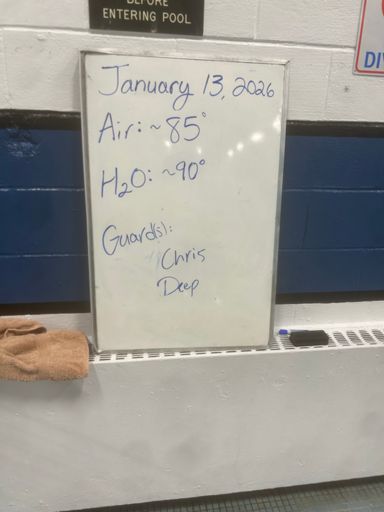 BEFORE
ENTERING POOL
DI
January 13, 2026
Air: ~85°
H₂O: ~90°
Guard(s):
Chris
Deep